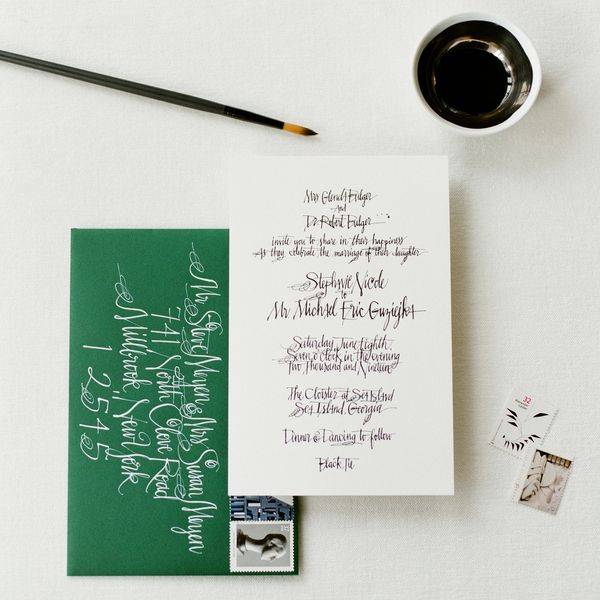 Mrs Glenda Bulger
and
Dr Robert Bulger
invite you to share in their happiness
as they celebrate the marriage of their daughter
Stephanie Nicole
to
Mr Michael Eric Guziejka
Saturday June Eighth
Seven o'clock in the evening
Two Thousand and Nineteen
The Cloister at Sea Island
Sea Island Georgia
Dinner & Dancing to follow
Black Tie
Mr Steve Mayen & Mrs Susan Mayen
741 North Clove Road
Millbrook, New York
1 2545